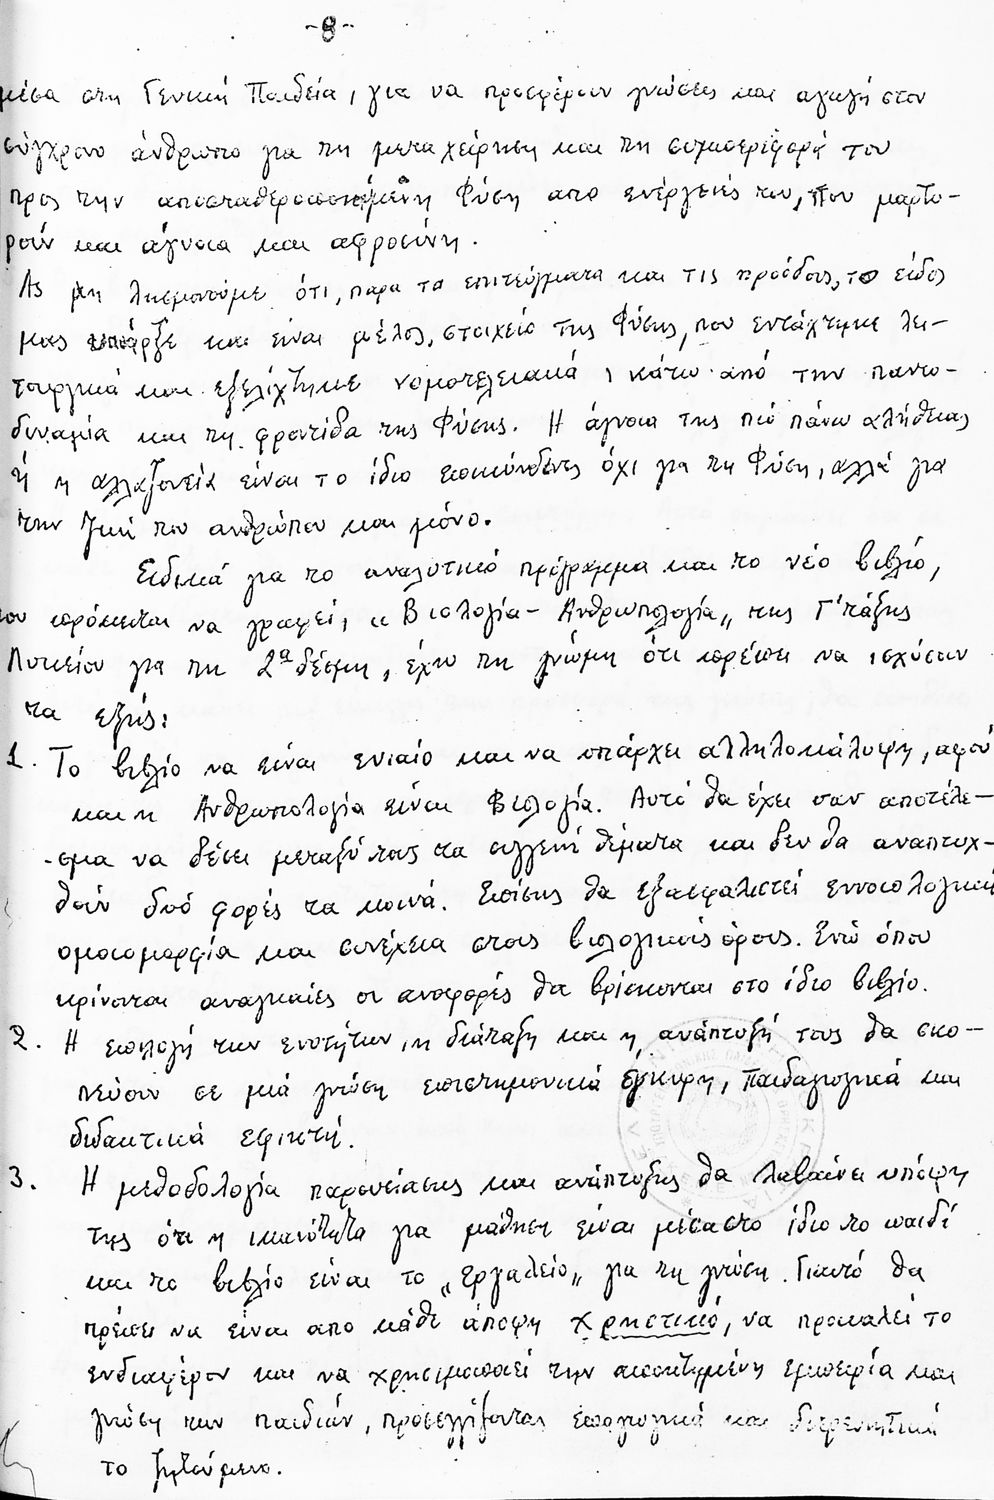 -8-
μέσα στη Γενική Παιδεία, για να προσφέρουν γνώσεις και αγωγή στον
σύγχρονο άνθρωπο για τη μεταχείρηση και τη συμπεριφορά του
προς την αποσταθεροποιημένη Φύση απο ενέργειές του, που μαρτυ-
ρούν και άγνοια και αφροσύνη.
Ας μη λησμονούμε ότι, παρα τα επιτεύγματα και τις προόδους, το είδος
μας υπήρξε και είναι μέλος, στοιχείο της Φύσης, που εντάχτηκε λει-
τουργικά και εξελίχτηκε νομοτελειακά, κάτω από την παντο-
δυναμία και τη φροντίδα της Φύσης. Η άγνοια της πιό πάνω αλήθειας
ή η αλλαζονεία είναι το ίδιο επικίνδυνες όχι για τη Φύση, αλλά για
την ζωή του ανθρώπου και μόνο.
Ειδικά για το αναλυτικό πρόγραμμα και το νέο βιβλίο,
που πρόκειται να γραφεί, "Βιολογία - Ανθρωπολογία" της Γ' τάξης
Λυκείου για τη 2α δέσμη, έχω τη γνώμη ότι πρέπει να ισχύσουν
τα εξής:
1. Το βιβλίο να είναι ενιαίο και να υπάρχει αλληλοκάλυψη, αφού
και η Ανθρωπολογία είναι Βιολογία. Αυτό θα έχει σαν αποτέλε-
σμα να δέσει μεταξύ τους τα συγγενή θέματα και δεν θα αναπτυχ-
θούν δυό φορές τα κοινά. Επίσης θα εξασφαλιστεί εννοιολογική
ομοιομορφία και συνέχεια στους βιολογικούς όρους. Ενώ όπου
κρίνονται αναγκαίες οι αναφορές θα βρίσκονται στο ίδιο βιβλίο.
2. Η επιλογή των ενοτήτων, η διάταξη και η ανάπτυξή τους θα σκο-
πεύουν σε μιά γνώση επιστημονικά έγκυρη, παιδαγωγικά και
διδακτικά εφικτή.
3. Η μεθοδολογία παρουσίασης και ανάπτυξης θα λαβαίνει υπόψη
της ότι η ικανότητα για μάθηση είναι μέσα στο ίδιο το παιδί
και το βιβλίο είναι το "εργαλείο" για τη γνώση. Γιαυτό θα
πρέπει να είναι απο κάθε άποψη χρηστικό, να προκαλεί το
ενδιαφέρον και να χρησιμοποιεί την αποκτημένη εμπειρία και
γνώση των παιδιών, προσεγγίζοντας επαγωγικά και διερευνητικά
το ζητούμενο.